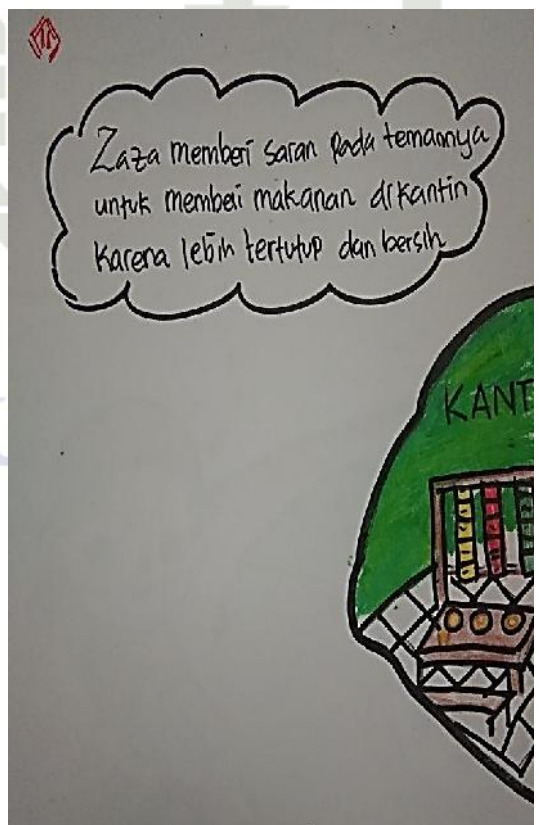 Zaza memberi saran pada temannya
untuk membei makanan di kantin
karena lebih tertutup dan bersih
KANT